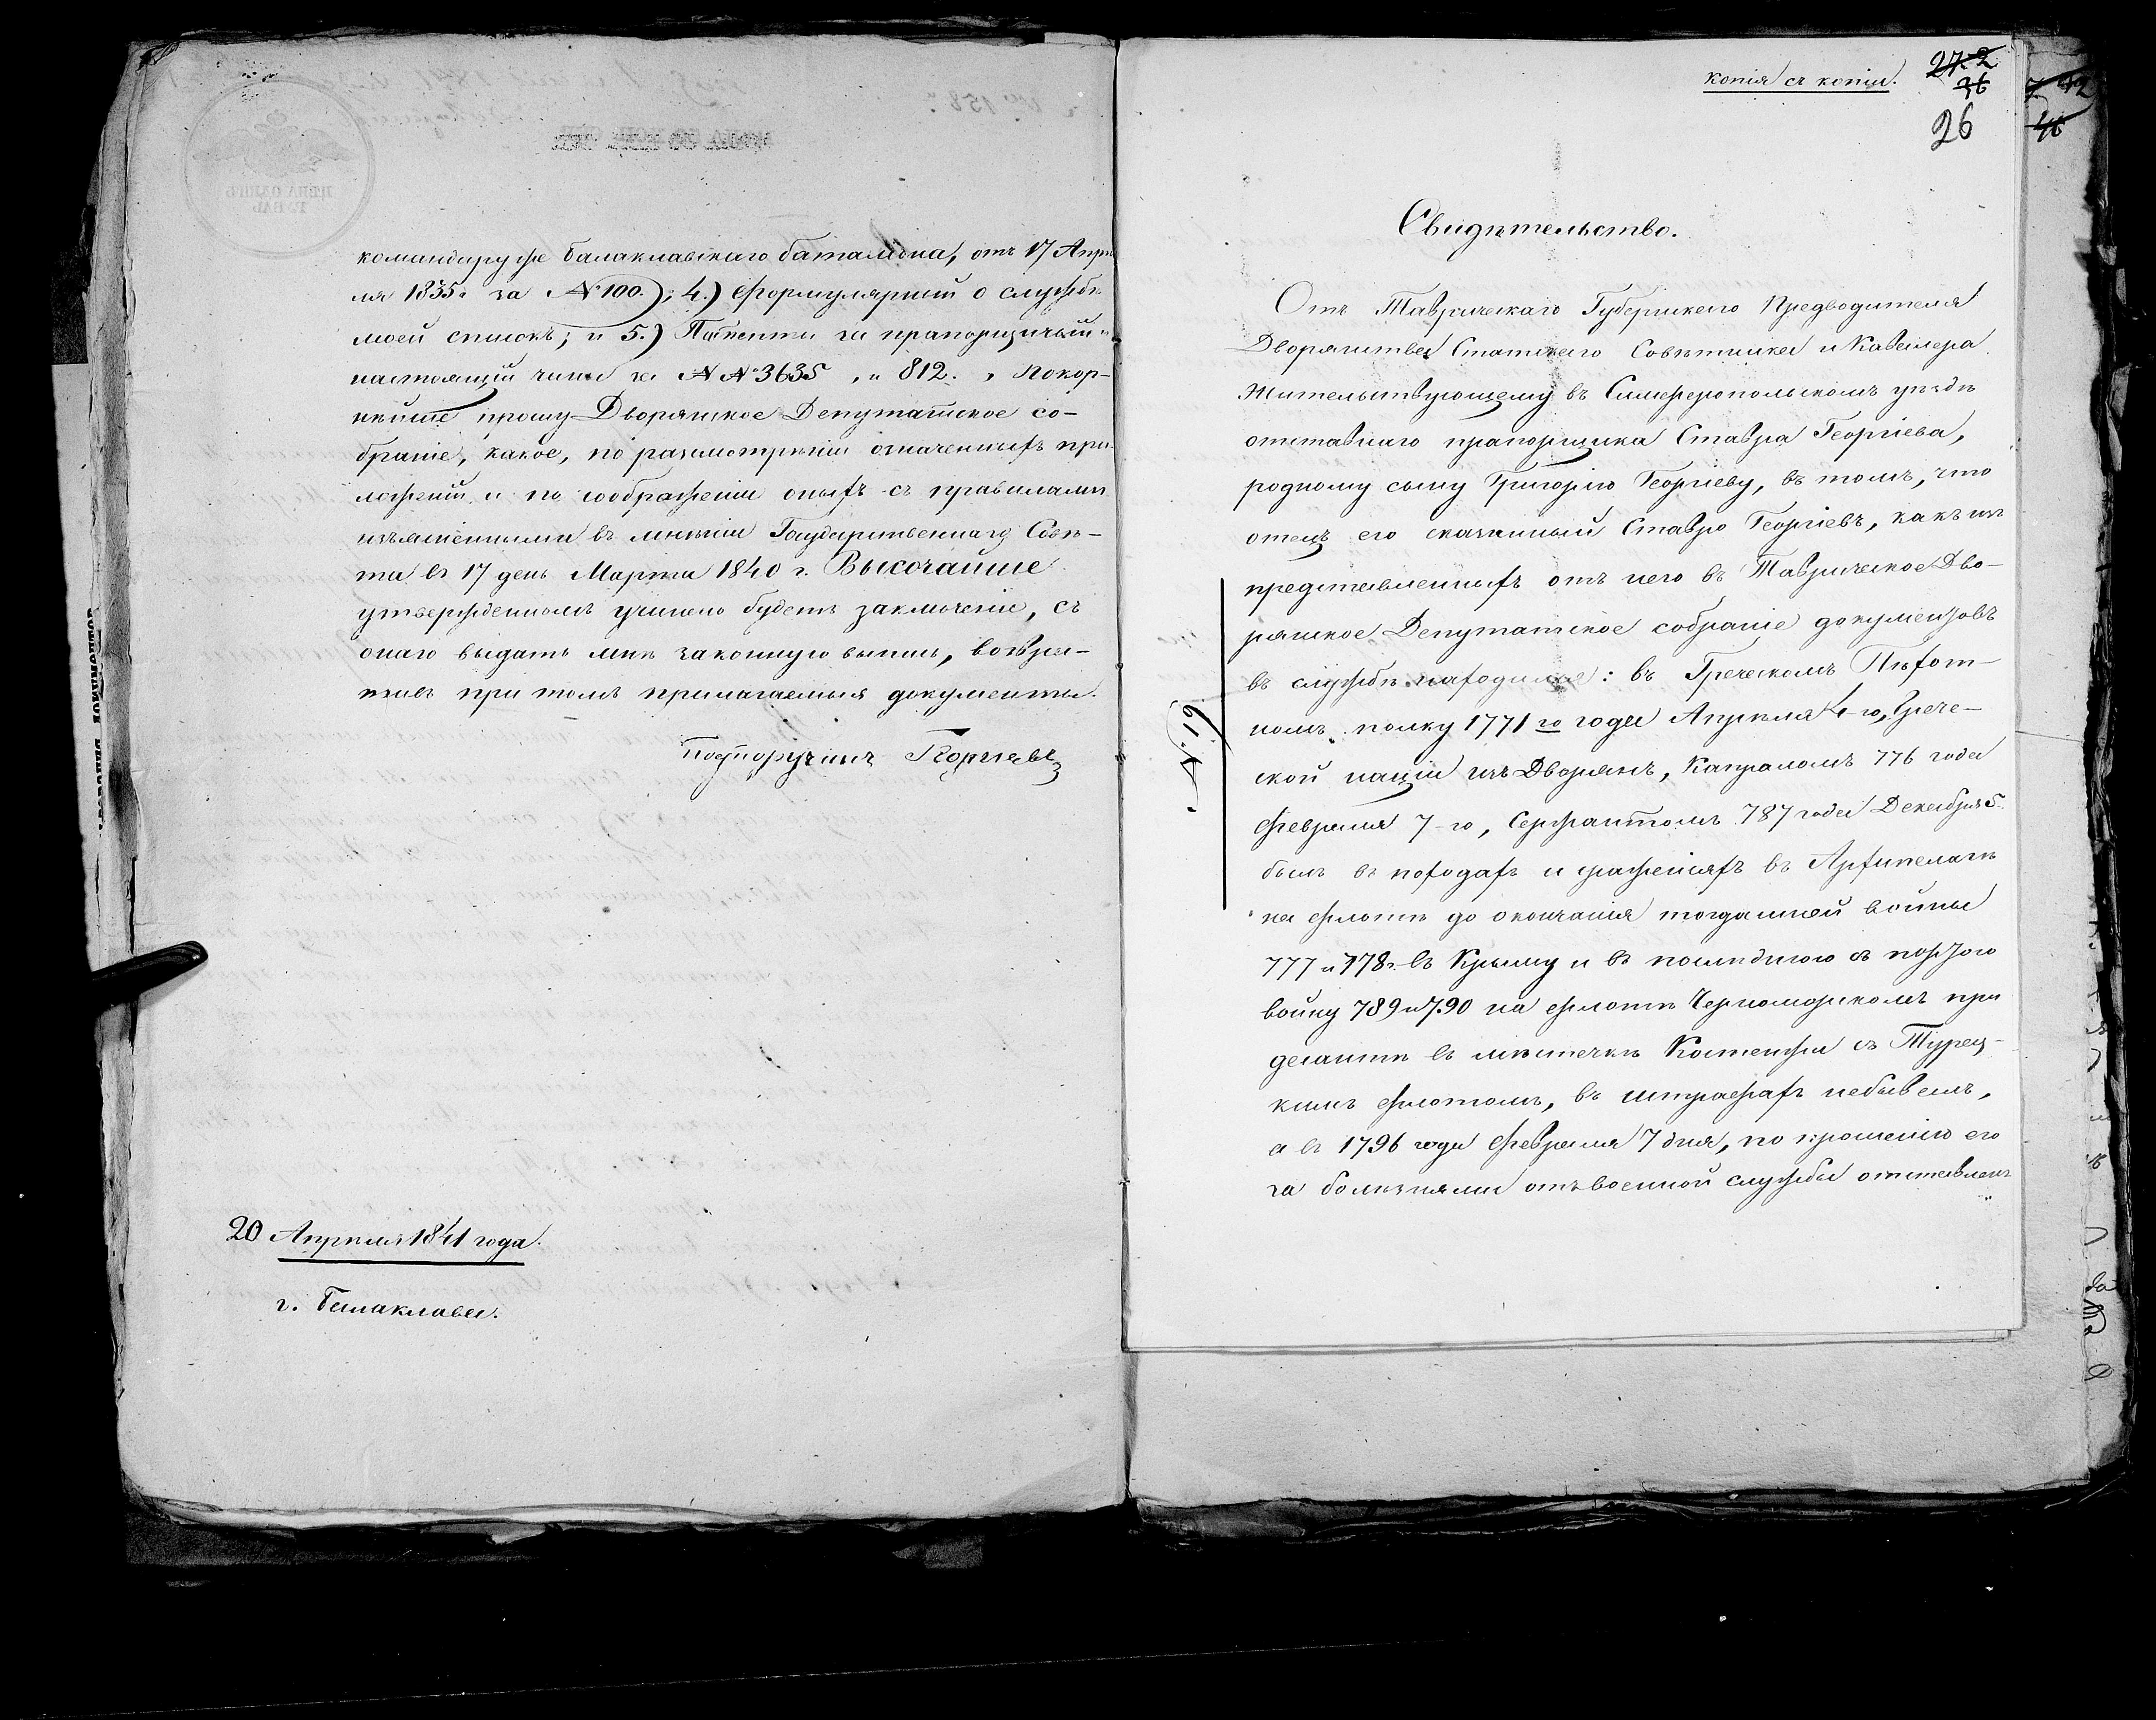 командиру же балаклавскаго баталіона, отъ 17 Апрѣ
ля 1835г за № 100.); 4.) Формулярный о службѣ
моей списокъ; и 5.) Патенты на прапорщичьій и
настоящій чины за №№ 3635, и 812. Покор-
нѣйше прошу Дворянское Депутатское со-
браніе, какое, по разсмотрѣніи означенныхъ при-
ложеній и по соображеніи оныхъ съ правилами
изъясненными въ мнѣніи Государственнаго Совѣ-
та въ 17 день Марта 1840 г. Высочайше
утвержденномъ учинено будетъ заключеніе, съ
онаго выдать мнѣ законную выпись, возвра-
тивъ при томъ прилагаемыя документы.
Подпоручикъ Георгіевъ
20 Апрѣля 1841 года.
г. Балаклава.
копія съ копіи.
27 2
36
26
7 42
46
Свидѣтельство.
Отъ Таврическаго Губернскаго Предводителя
Дворянства Статскаго Совѣтника и Кавалера
Жительствующему въ Симферопольскомъ уѣздѣ
отставнаго прапорщика Ставра Георгіева,
родному сыну Григорію Георгіеву, въ томъ, что
отецъ его сказанный Ставро Георгіевъ, какъ изъ
представленныхъ отъ него въ Таврическое Дво-
рянское Депутатское собраніе документовъ
въ службѣ находился: въ Греческомъ Пѣхот-
номъ полку 1771го года Апрѣля 4-го, Грече-
ской націи изъ Дворянъ, Капраломъ 776 года
Февраля 7-го, Сержантомъ 787 года Декабря 5.
былъ въ походахъ и сраженіяхъ въ Архипелагѣ
на флотѣ до окончанія тогдашней войны
777 и 778г. въ Крыму и въ послѣднюю съ портою
войну 789 и 790 на флотѣ Черноморскомъ при
десантѣ въ мѣстечкѣ Костенжи съ Турец-
кимъ флотомъ, въ штрафахъ небывалъ,
а въ 1796 года Февраля 7 дня, по прошенію его
за болѣзнями отъ военной службы отставленъ
№ 19